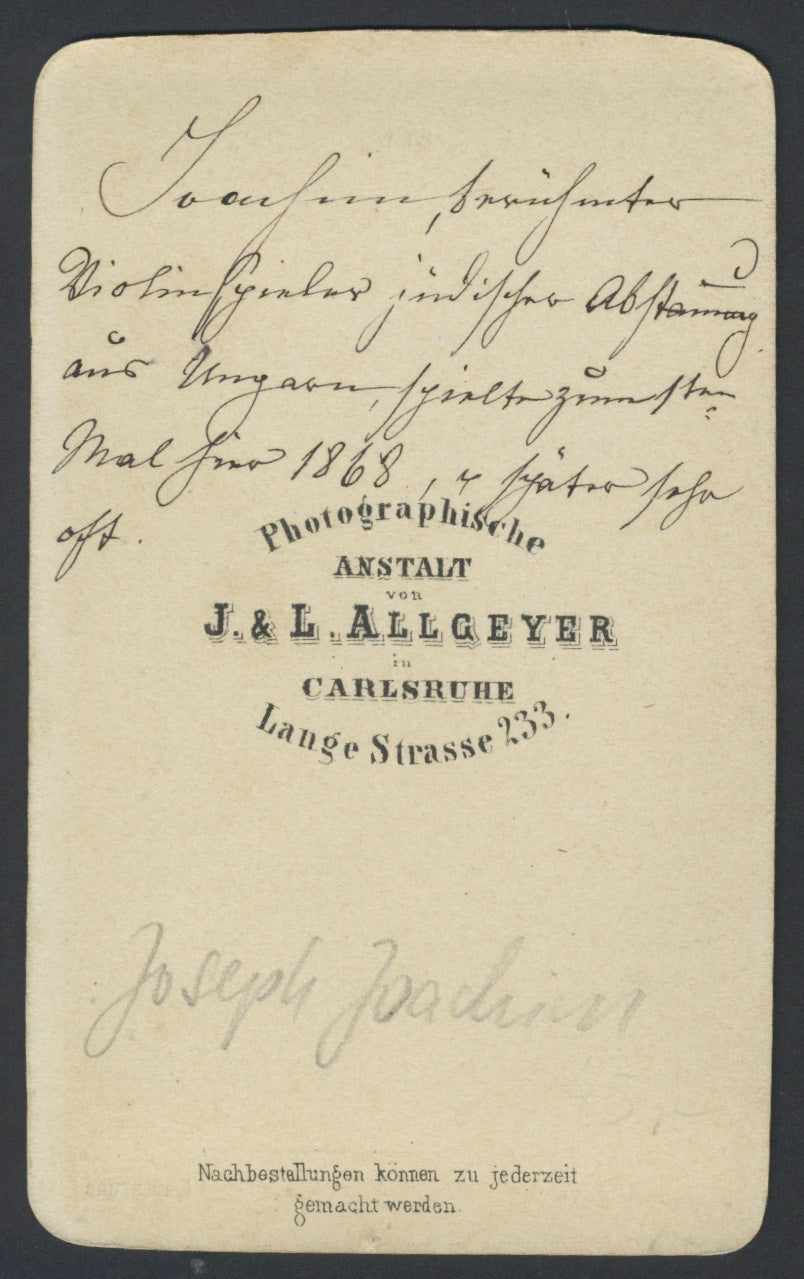 Joachim, berühmter
Violinspieler jüdischer Abstam̅ung
aus Ungarn, spielte zum 1sten
Mal hier 1868, u später sehr
oft.
Photographische
ANSTALT
von
J. & L. ALLGEYER
in
CARLSRUHE
Lange Strasse 233.
Joseph Joachim
Nachbestellungen können zu jederzeit
gemacht werden.